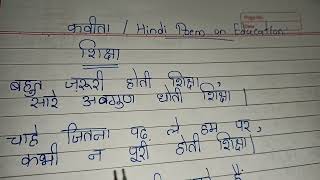 कवीता / Hindi Poem on Education
शिक्षा
बहुत ज़रूरी होती शिक्षा,
सारे अवगुण धोती शिक्षा।
चाहे जितना पढ़ ले हम पर,
कभी न पूरी होती शिक्षा।